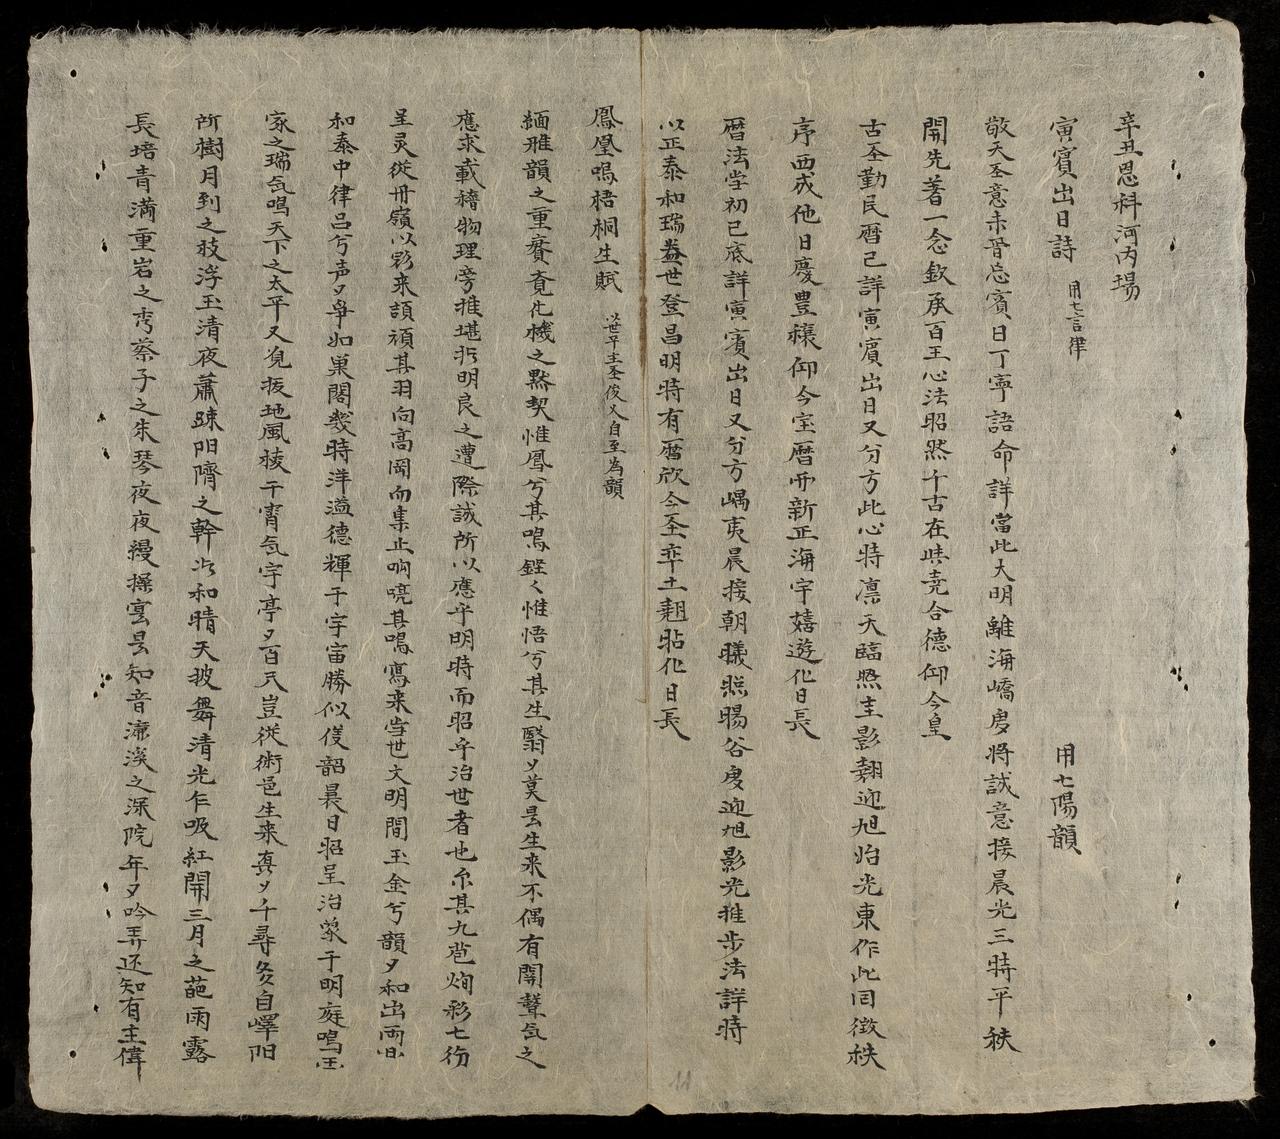 辛丑恩科河内場
寅賓出日詩 用七言律 用七陽韻
敬天圣意未晋忘賓日丁寧語命詳當此大明離海嶠虔將誠意接晨光三時平秩
開先著一念欽承百王心法昭然千古在欽堯合德仰今皇
古圣勤民暦已詳寅賓出日又分方此心特凛天臨照圭影翹迎旭始光東作此囙徵秩
序西成他日慶豊穰仰今宝暦開新正海宇嬉遊化日長
暦法堂初已底詳寅賓出日又分方嵎夷晨接朝曦照暘谷虔迎旭影光推步法詳時
以正泰和瑞 世登昌明時有暦欣今圣弈土翹眙化日長
鳳凰鳴梧桐生賦 世平主圣俊乂自至為韻
緬雅韻之重賡竟化機之黙契惟鳳兮其鳴鏗〻惟梧兮其生翳〻莫昙生来不偶有開聲気之
應求載稽物理旁推堪拟明良之遭際誠所以應乎明時而昭乎治世者也尔其九苞炳彩七彷
呈灵従丹嶺以彩来頡頏其羽向高岡而集止响喨其鳴寫来当世文明間玉金兮韻〻和出両
和泰中律呂兮声〻争如巢閣幾時洋溢德輝于宇宙勝似儀韶晨日昭呈治蒙于明庭鳴
家之瑞気鳴天下之太平又覓拔地風稜干霄気宇亭〻百尺豈従術邑生来真〻千尋矣自嶧阳
所樹月到之枝浮玉清夜蕭踈阳隮之幹 和晴天披舞清光乍吸紅開三月之葩雨露
長培青满重岩之 蔡子之朱琴夜夜縵操寔昙知音 淡之深院年〻吟弄还知有主偉